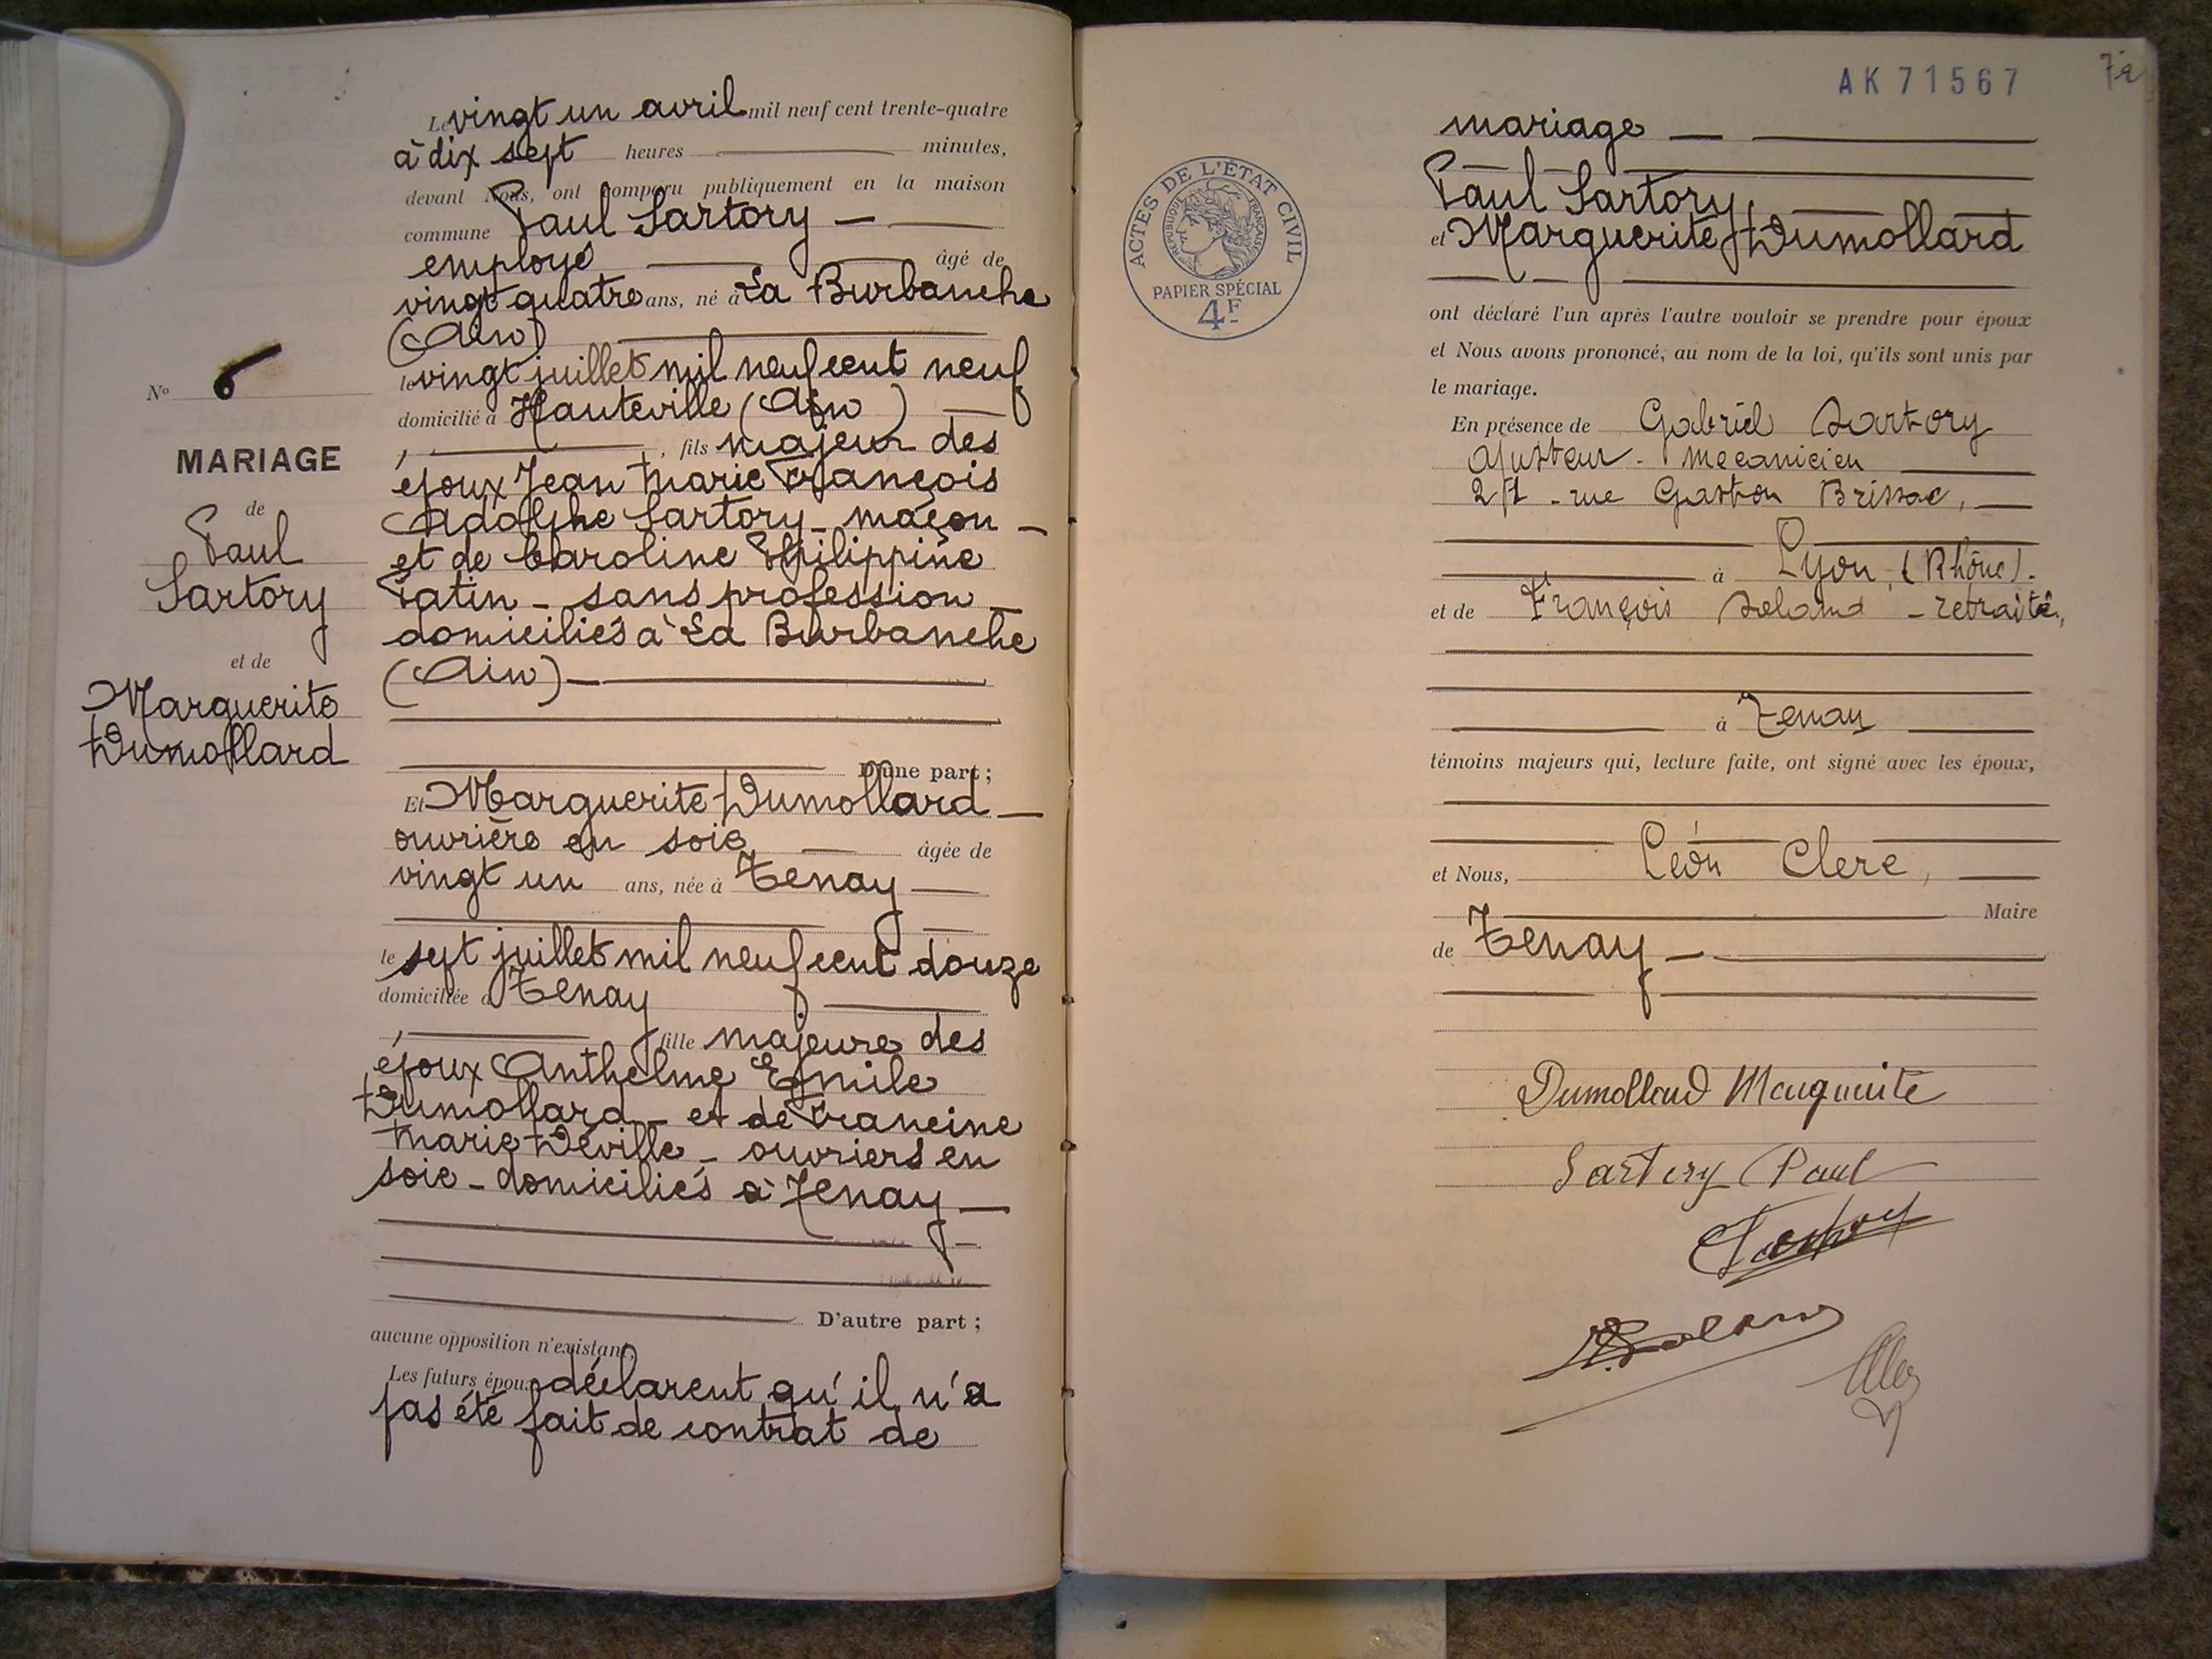 Le vingt un avril mil neuf cent trente-quatre
à dix sept heures minutes,
devant Nous, ont comparu publiquement en la maison
commune Paul Sartory
employé âgé de
vingt quatre ans, né à La Burbanche
(Ain)
le vingt juillet mil neuf cent neuf
domicilié à Hauteville (Ain)
, fils majeur des
époux Jean Marie François
Adolphe Sartory - maçon -
et de Caroline Philippine
Patin - sans profession -
domiciliés à La Burbanche
(Ain)
D'une part ;
Et Marguerite Dumollard
ouvrière en soie âgée de
vingt un ans, née à Tenay
le sept juillet mil neuf cent douze
domiciliée à Tenay
, fille majeure des
époux Anthelme Emile
Dumollard - et de Francine
Marie Déville - ouvriers en
soie - domiciliés à Tenay
D'autre part ;
aucune opposition n'existant,
Les futurs époux déclarent qu'il n'a
pas été fait de contrat de
N° 6
MARIAGE
de
Paul
Sartory
et de
Marguerite
Dumollard
AK 71567
mariage
Paul Sartory
et Marguerite Dumollard
ont déclaré l'un après l'autre vouloir se prendre pour époux
et Nous avons prononcé, au nom de la loi, qu'ils sont unis par
le mariage.
En présence de Gabriel Sartory
ajusteur - mécanicien
rue Gaston Brissac,
à Lyon, (Rhône).
et de François - retraité,
à Tenay
témoins majeurs qui, lecture faite, ont signé avec les époux,
et Nous, Léon Clerc,
Maire
de Tenay
Dumollard Marguerite
Sartory Paul
ACTES DE L'ÉTAT CIVIL
RÉPUBLIQUE FRANÇAISE
PAPIER SPÉCIAL
4F